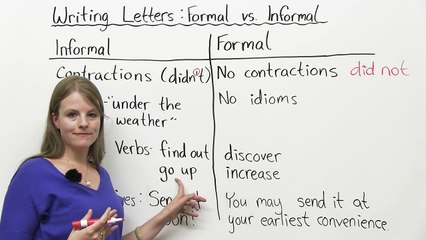 Writing Letters: Formal vs. Informal
Informal
Formal
Contractions (didn't)
No contractions did not
"under the
weather"
No idioms
Verbs: find out
go up
discover
increase
You may send it at
your earliest convenience.